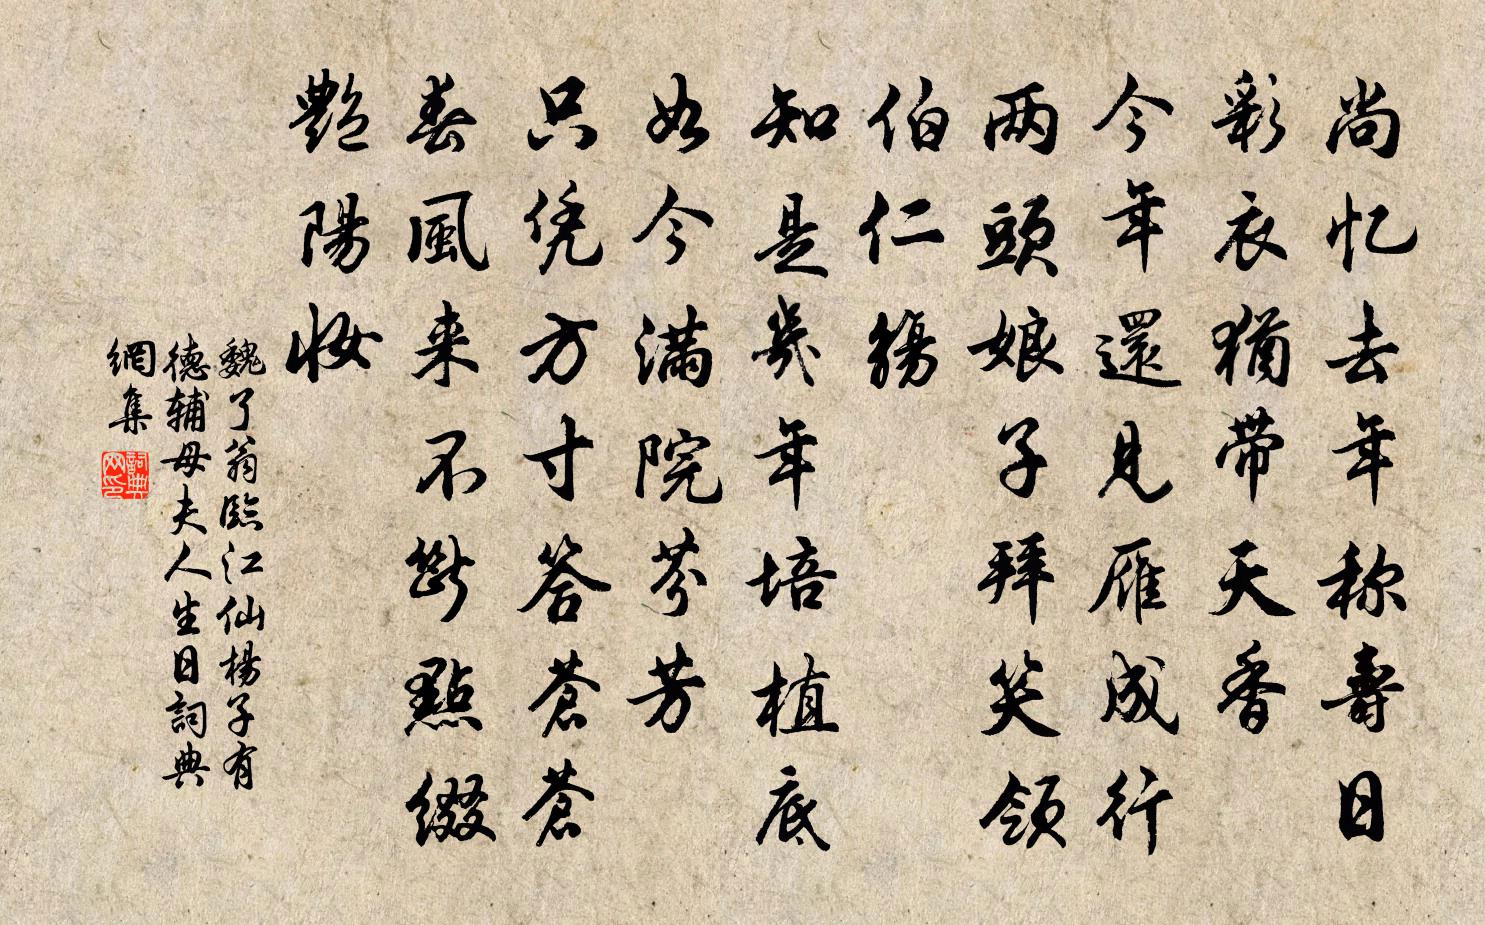 尚忆去年称壽日
彩衣猶带天香
今年還见雁成行
两頭娘子拜笑领
伯仁觴
知是幾年培植底
如今满院芬芳
只凭方寸答蒼蒼
春風来不断點缀
艷陽妝
魏了翁臨江仙楊子有
德辅母夫人生日詞典
網集
詞典网印